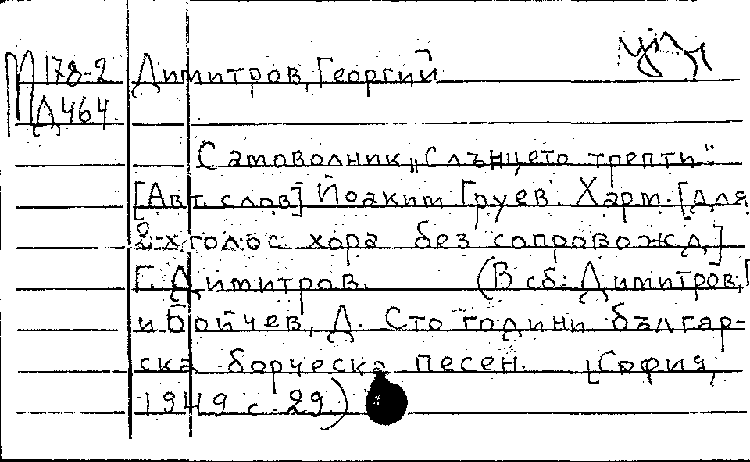 П178-2 Димитров, Георгий
Д464
Самоволник „Слънцето трепти"
[Авт. слов] Йоаким Груев. Харм. [для
2-х голос. хора без сопровожд.]
Г. Димитров. (В сб: Димитров, Г
и Бойчев, Д. Сто години българ-
ска борческа песен. [София,
1949 с. 29.)